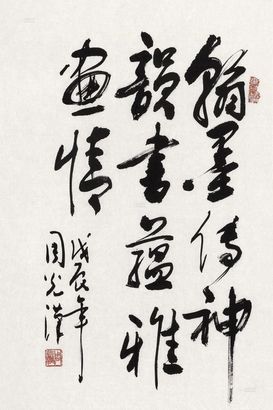 翰墨傳神
韻書蘊雅
畫情
戊辰年
周光漢